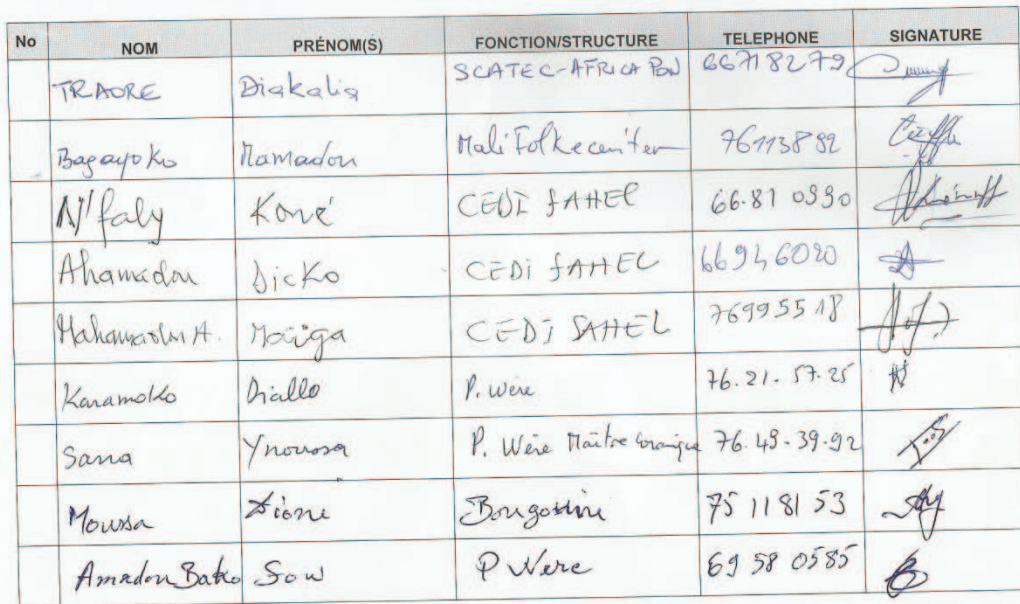 No NOM PRÉNOM(S) FONCTION/STRUCTURE TELEPHONE SIGNATURE
TRAORE Diakalia SCATEC-AFRICA 66718279
Bagayoko Mamadou Mali Folkecenter 76113892
N'faly Koné CEDI SAHEL 66.81 0990
Ahamadou Dicko CEDI SAHEL
Mahamadou A. Maïga CEDI SAHEL 76995518
Karamoko Diallo P. Wéré 76.21.57.25
Sana Ynoussa P. Wéré Maître 76.49.39.92
Moussa 75 118153
Amadou Sow P Were 69 58 0585